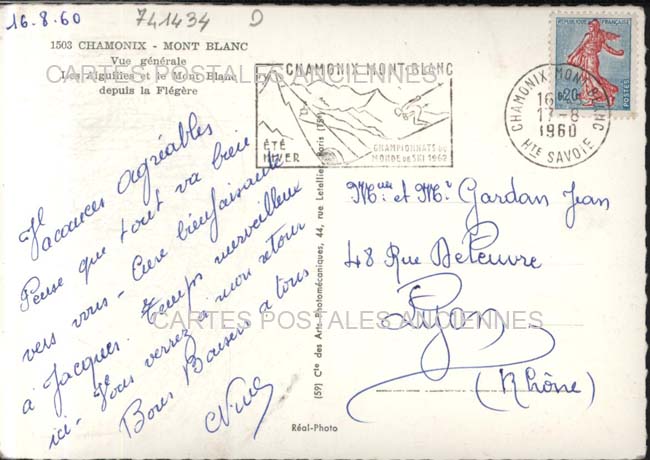 16.8.60
741434
D
1503 CHAMONIX - MONT BLANC
Vue générale
Les Aiguilles et le Mont Blanc
depuis la Flégère
CARTES POSTALES ANCIENNES
CHAMONIX MONT-BLANC
ÉTÉ
HIVER
CHAMPIONNATS DU
MONDE DE SKI 1962
CHAMONIX MONT BLANC
16
17-8
1960
HTE SAVOIE
REPUBLIQUE FRANÇAISE
0,20
POSTES
Vacances Agréables
Pense que tout va bien
vers vous - Cure bienfaisante
à Jacques. Temps merveilleux
ici - Vous verrez à mon retour
Bons Baisers à tous
(59) Cie des Arts Photomécaniques, 44, rue Letellier, Paris (15e)
Mme et Mr Gardan Jean
48 Rue
Lyon
(Rhône)
CARTES POSTALES ANCIENNES
Réal-Photo